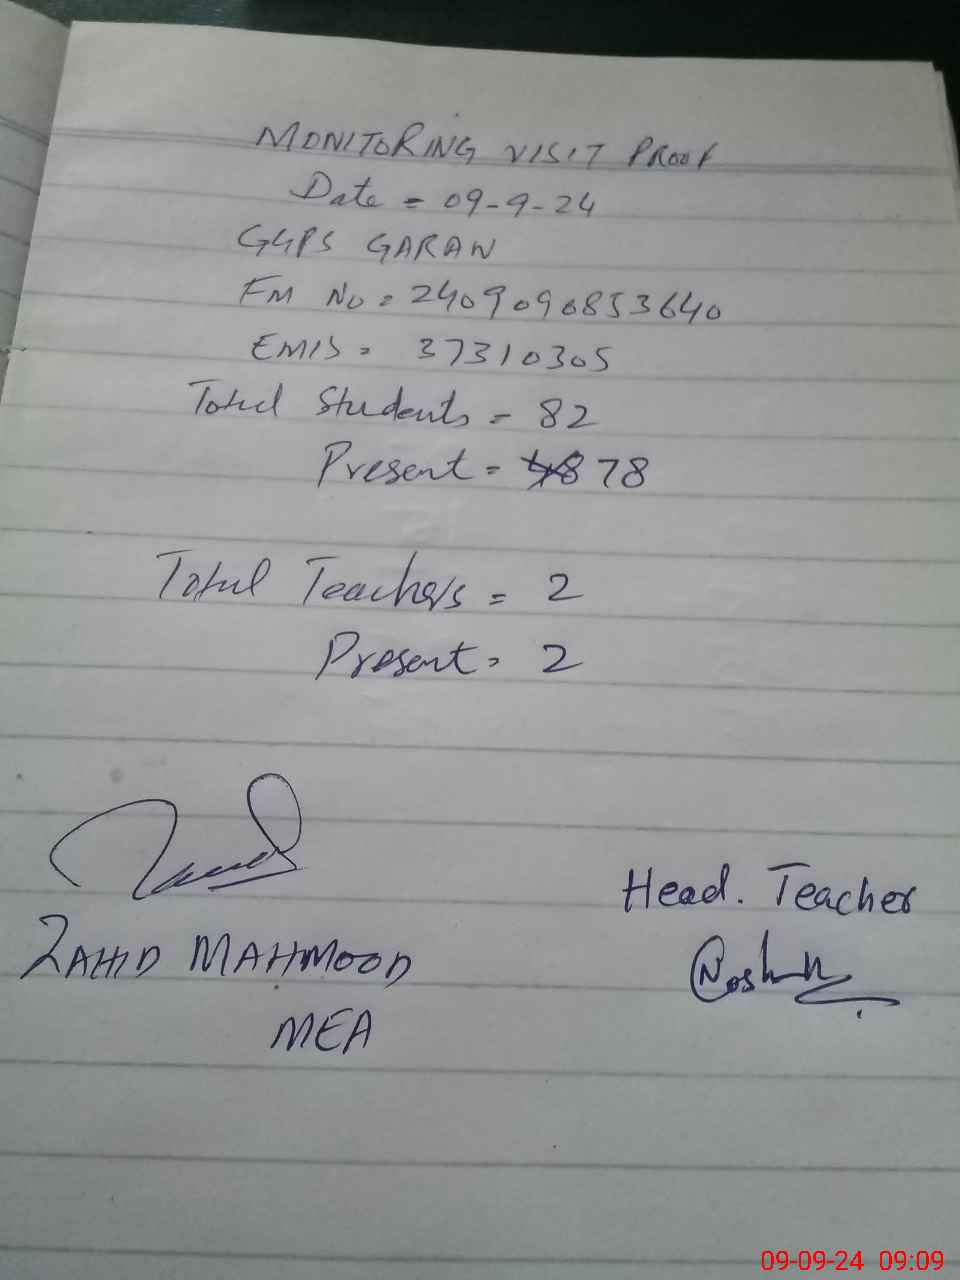 MONITORING VISIT PROOF
Date = 09-9-24
GGPS GARAN
FM No = 2409090853640
EMIS = 37310305
Total Students = 82
Present = 78
Total Teachers = 2
Present = 2
ZAHID MAHMOOD
MEA
Head. Teacher
09-09-24 09:09